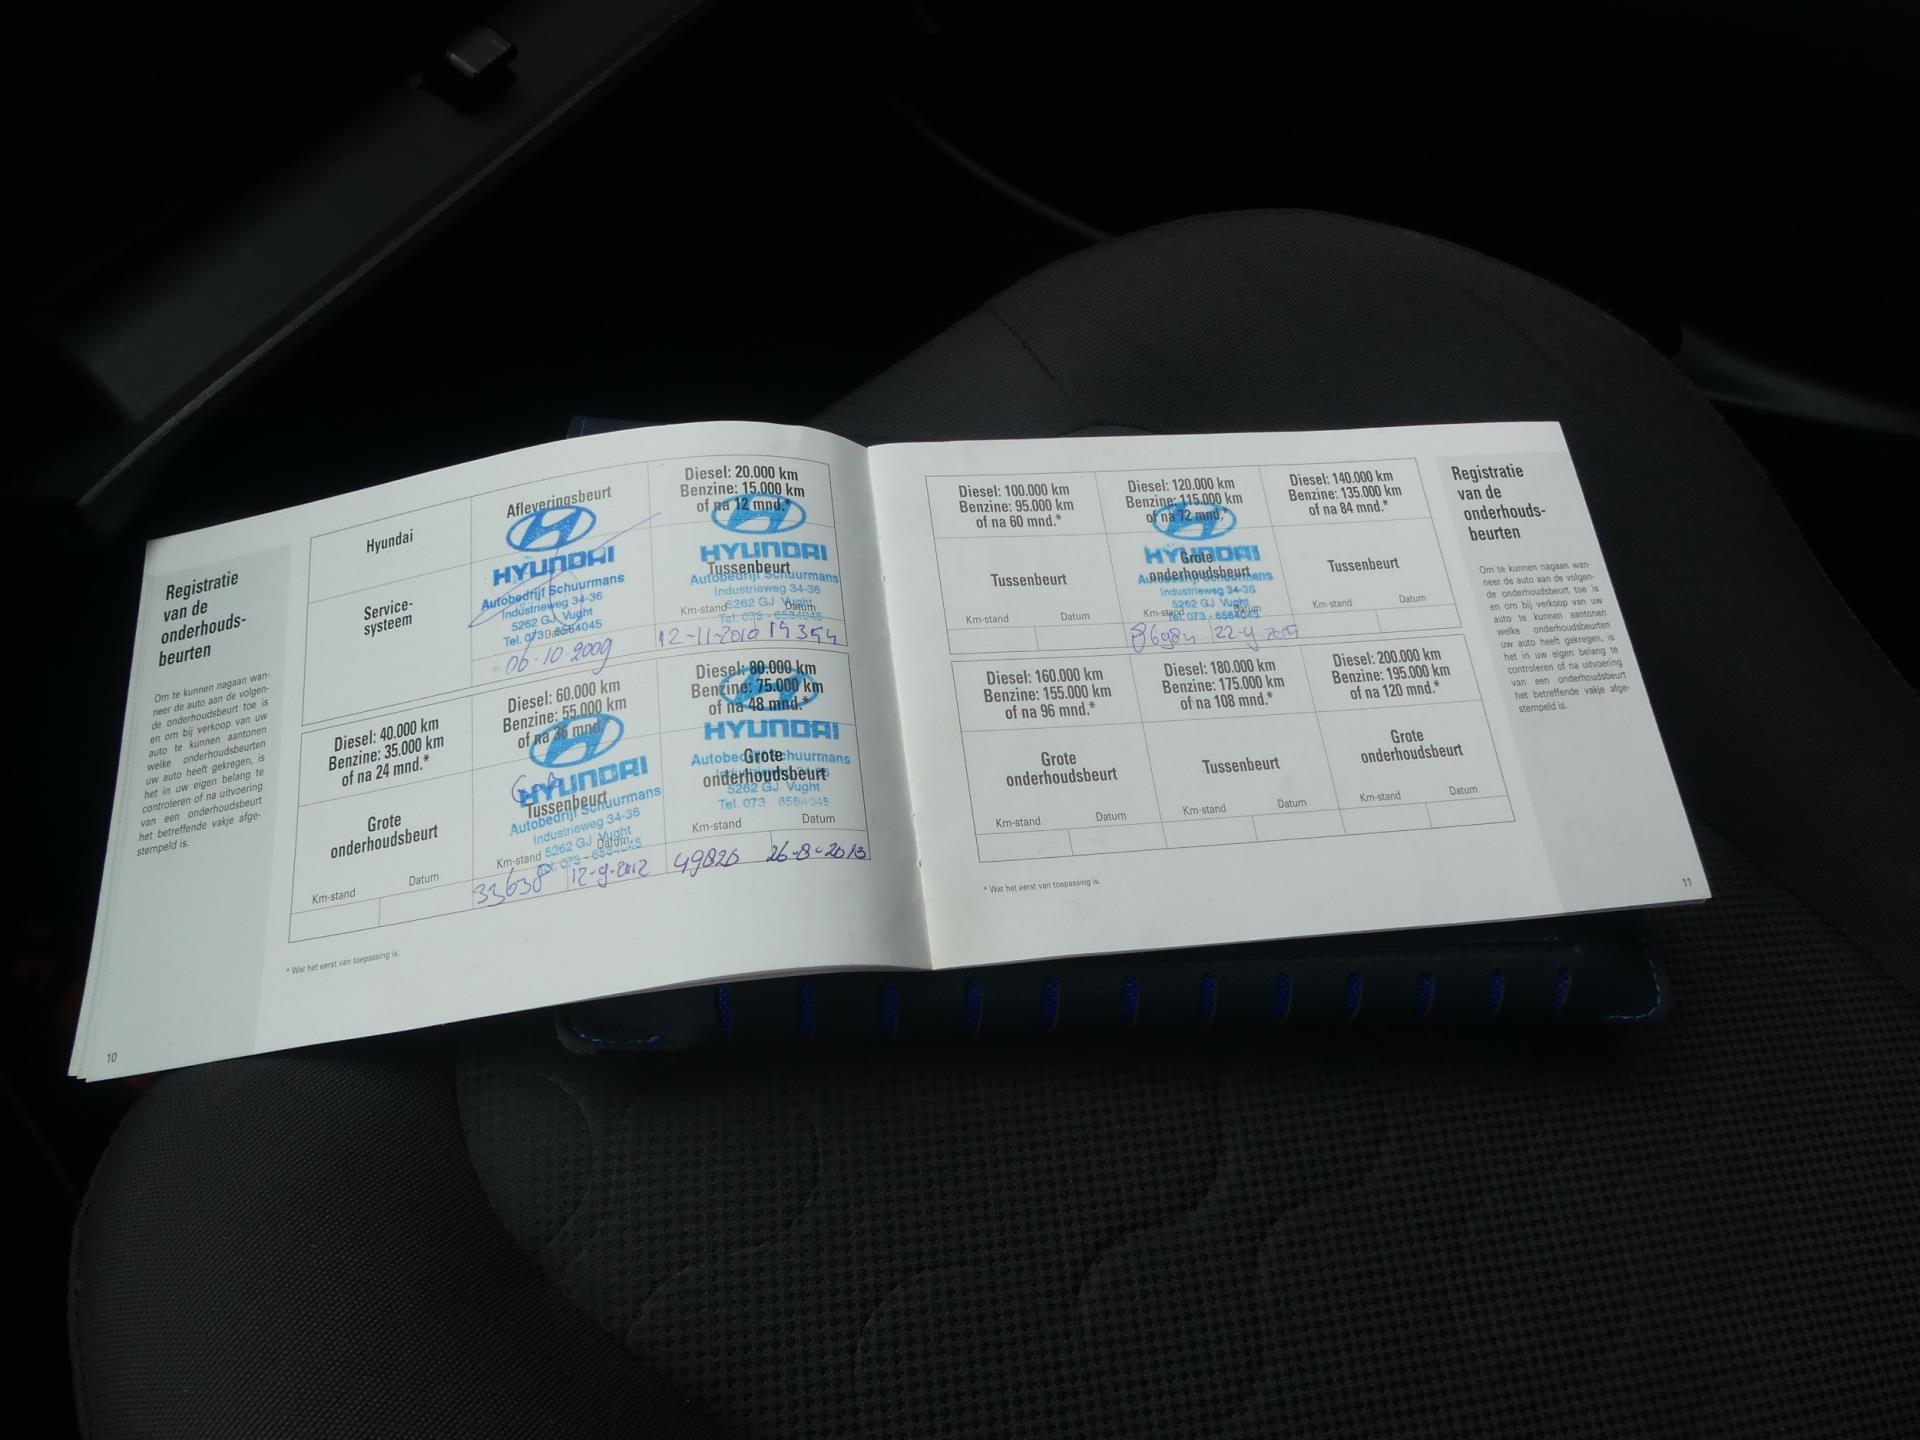 Registratie
van de
onderhouds-
beurten
Om te kunnen nagaan wan-
neer de auto aan de volgen-
de onderhoudsbeurt toe is
en om bij verkoop van uw
auto te kunnen aantonen
welke onderhoudsbeurten
uw auto heeft gekregen, is
het in uw eigen belang te
controleren of na uitvoering
van een onderhoudsbeurt
het betreffende vakje afge-
stempeld is.
10
Hyundai
Service-
systeem
Afleveringsbeurt
HYUNDAI
Autobedrijf Schuurmans
Industrieweg 34-36
5262 GJ Vught
Tel. 073 - 6564045
06-10-2009
Diesel: 20.000 km
Benzine: 15.000 km
of na 12 mnd.*
HYUNDAI
Tussenbeurt
Autobedrijf Schuurmans
Industrieweg 34-36
5262 GJ Vught
Tel. 073 - 6564045
Km-stand Datum
12-11-2010 19354
Diesel: 40.000 km
Benzine: 35.000 km
of na 24 mnd.*
Grote
onderhoudsbeurt
Km-stand Datum
Diesel: 60.000 km
Benzine: 55.000 km
of na 36 mnd.*
HYUNDAI
Tussenbeurt
Autobedrijf Schuurmans
Industrieweg 34-36
5262 GJ Vught
Km-stand Datum
33638 12-9-2012
Diesel: 80.000 km
Benzine: 75.000 km
of na 48 mnd.*
HYUNDAI
Autobedrijf Schuurmans
Grote
onderhoudsbeurt
Industrieweg 34-36
5262 GJ Vught
Tel. 073 6564045
Km-stand Datum
49826 26-8-2013
* Wat het eerst van toepassing is.
Diesel: 100.000 km
Benzine: 95.000 km
of na 60 mnd.*
Tussenbeurt
Km-stand Datum
Diesel: 120.000 km
Benzine: 115.000 km
of na 72 mnd.*
HYUNDAI
Grote
onderhoudsbeurt
Autobedrijf Schuurmans
Industrieweg 34-36
5262 GJ Vught
Tel. 073 - 6564045
Km-stand Datum
Diesel: 140.000 km
Benzine: 135.000 km
of na 84 mnd.*
Tussenbeurt
Km-stand Datum
Diesel: 160.000 km
Benzine: 155.000 km
of na 96 mnd.*
Grote
onderhoudsbeurt
Km-stand Datum
Diesel: 180.000 km
Benzine: 175.000 km
of na 108 mnd.*
Tussenbeurt
Km-stand Datum
Diesel: 200.000 km
Benzine: 195.000 km
of na 120 mnd.*
Grote
onderhoudsbeurt
Km-stand Datum
* Wat het eerst van toepassing is.
Registratie
van de
onderhouds-
beurten
Om te kunnen nagaan wan-
neer de auto aan de volgen-
de onderhoudsbeurt toe is
en om bij verkoop van uw
auto te kunnen aantonen
welke onderhoudsbeurten
uw auto heeft gekregen, is
het in uw eigen belang te
controleren of na uitvoering
van een onderhoudsbeurt
het betreffende vakje afge-
stempeld is.
11